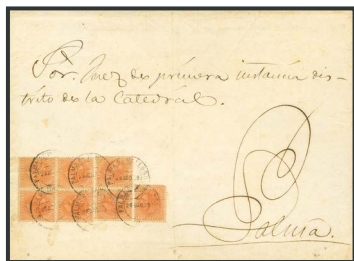 Sor. Juez de primera instancia dis-
trito de la Catedral.
Palma.